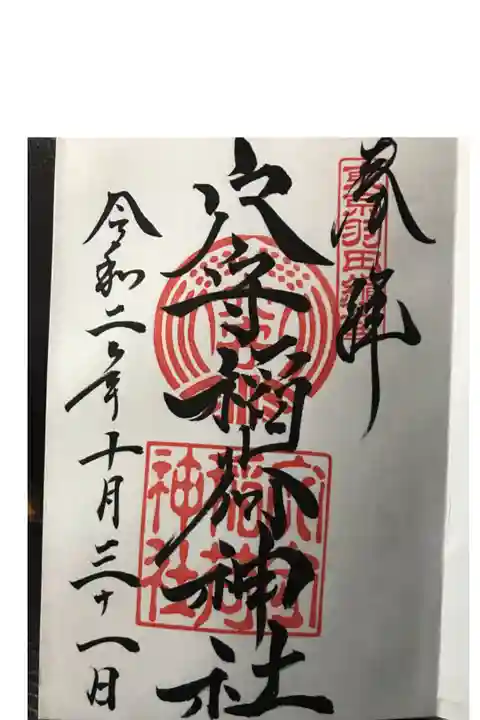 奉拝
東京羽田鎮座
穴守稲荷神社
穴守稲荷神社
令和二年十月三十一日